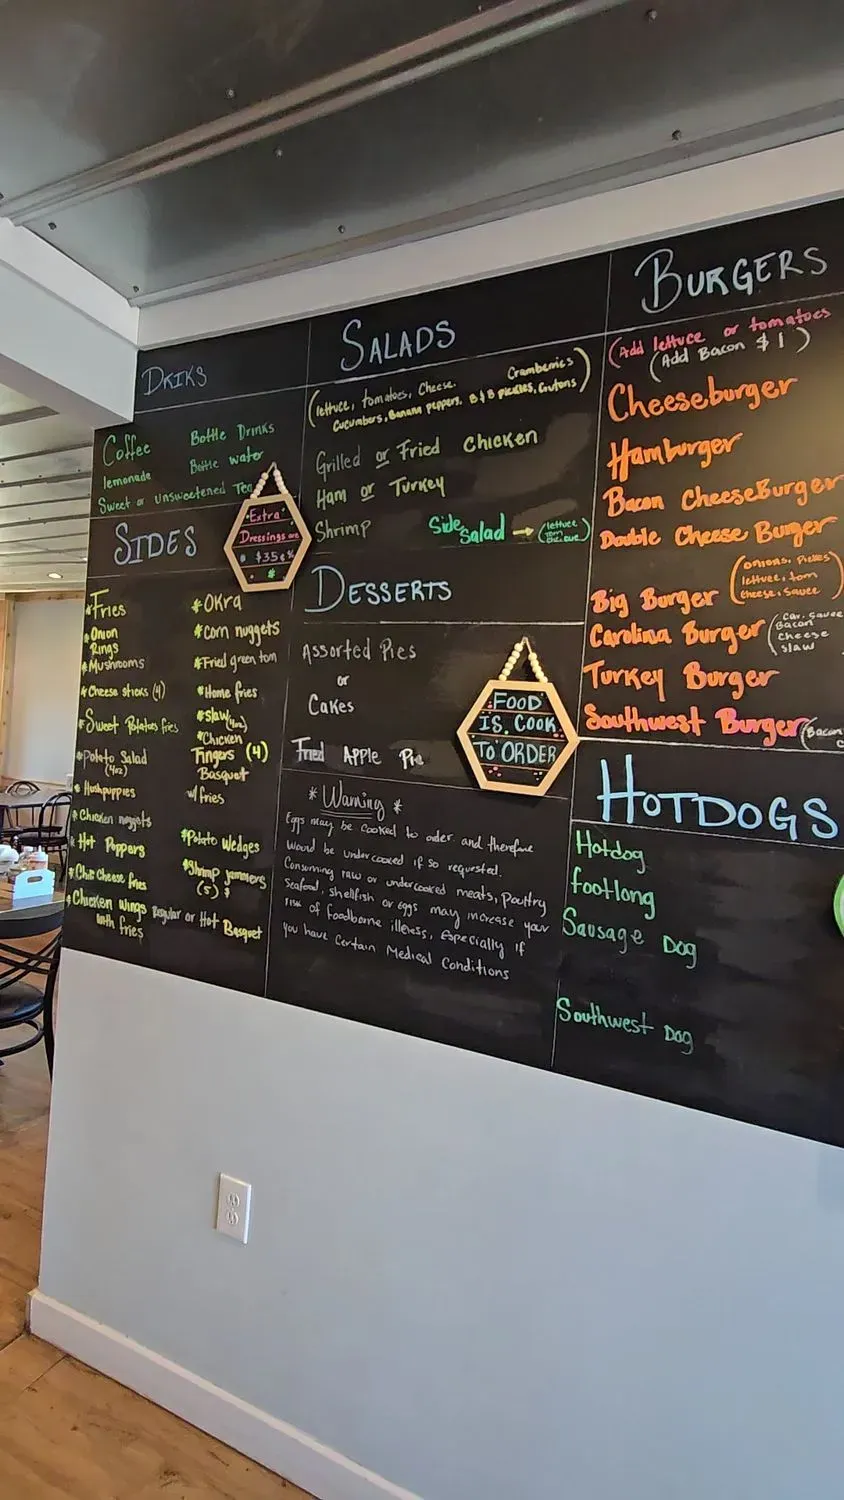 DRIKS
Coffee
Bottle Drinks
lemonade
Bottle water
Sweet or unsweetened Tea
Extra
Dressings are
$.35¢
SIDES
*Fries
*Onion
Rings
*Mushrooms
*Cheese sticks (4)
*Sweet Potatoes fries
*Potato Salad
(4oz)
*Hushpuppies
*Chicken nuggets
*Hot Poppers
*Chili Cheese fries
*Chicken wings
with fries
Regular or Hot Basquet
*OKra
*Corn nuggets
*Fried green tom
*Home fries
*Slaw (4oz)
*Chicken
Fingers (4)
Basquet
w/ fries
*Potato Wedges
*Shrimp jammers
(5) $
SALADS
(lettuce, tomatoes, Cheese. Cramberries
Cucumbers, Banana peppers, B&B pickles, Crutons)
Grilled or Fried Chicken
Ham or Turkey
Shrimp
Side Salad → (lettuce
DESSERTS
Assorted Pies
or
Cakes
Fried Apple Pie
FOOD
IS COOK
TO ORDER
* Warning *
Eggs may be cooked to order and therefore
Would be undercooked if so requested.
Consuming raw or undercooked meats, poultry
Seafood, shellfish or eggs may increase your
risk of foodborne illness, especially if
you have Certain Medical Conditions
BURGERS
(Add lettuce or tomatoes
(Add Bacon $1)
Cheeseburger
Hamburger
Bacon CheeseBurger
Double Cheese Burger
Big Burger
(onions, Pickles
lettuce, tom
cheese, sauce)
Carolina Burger
(Car. sauce
Bacon
cheese
slaw
Turkey Burger
Southwest Burger (Bacon
HOTDOGS
Hotdog
footlong
Sausage Dog
Southwest Dog